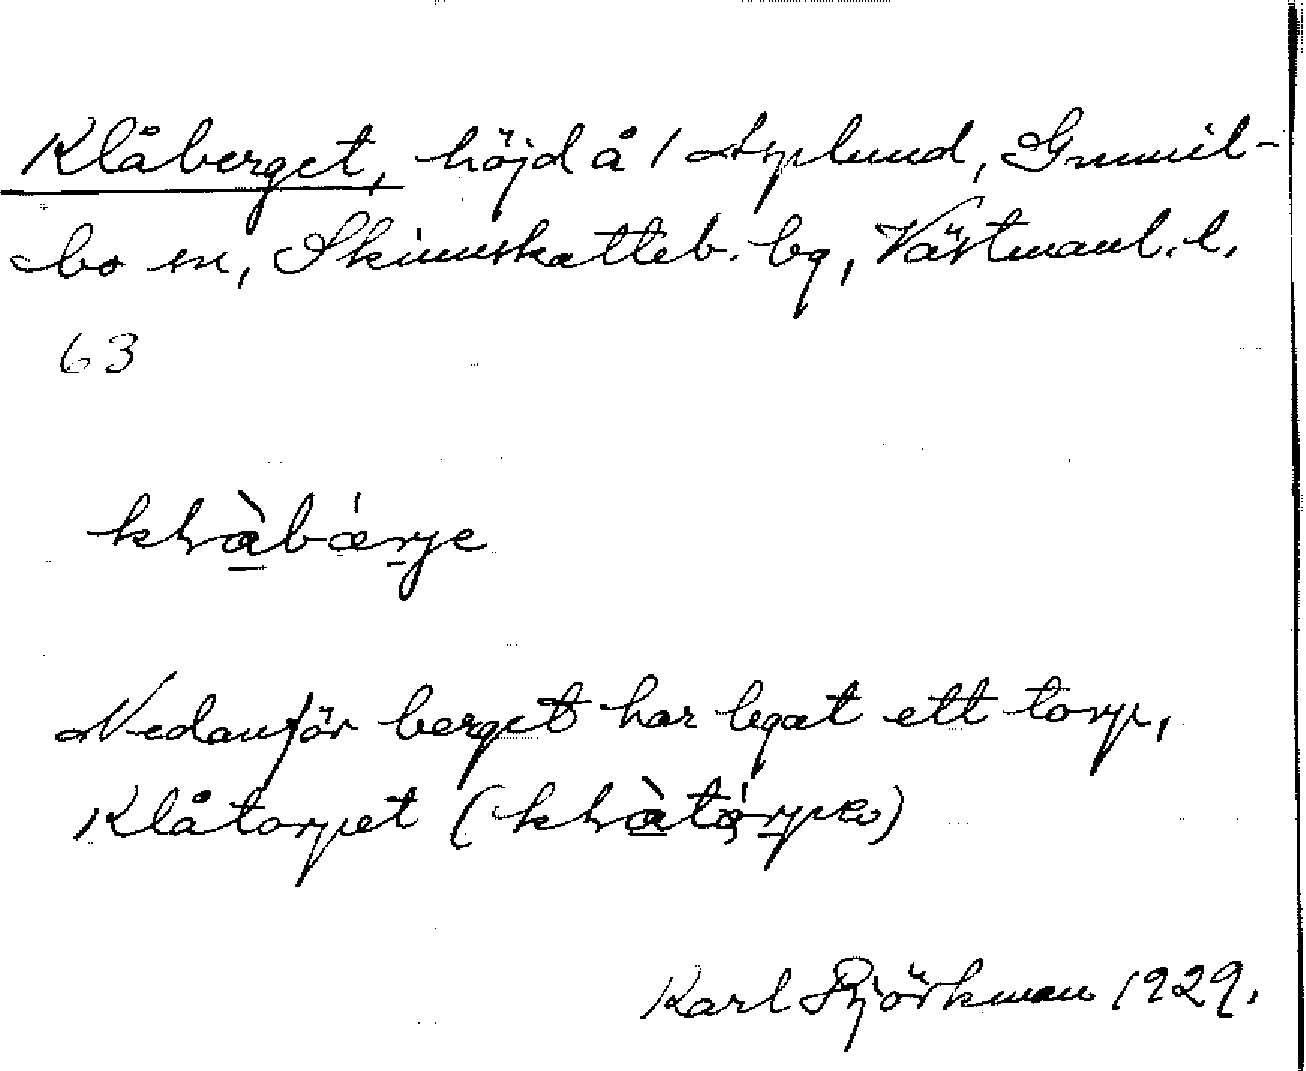 Klåberget, höjd å 1 Asplund, Gunnil-
bo sn, Skinnskatteb. bg, Västmanl. l.
63
Nedanför berget har legat ett torp,
Klåtorpet
Karl Björkman 1929.